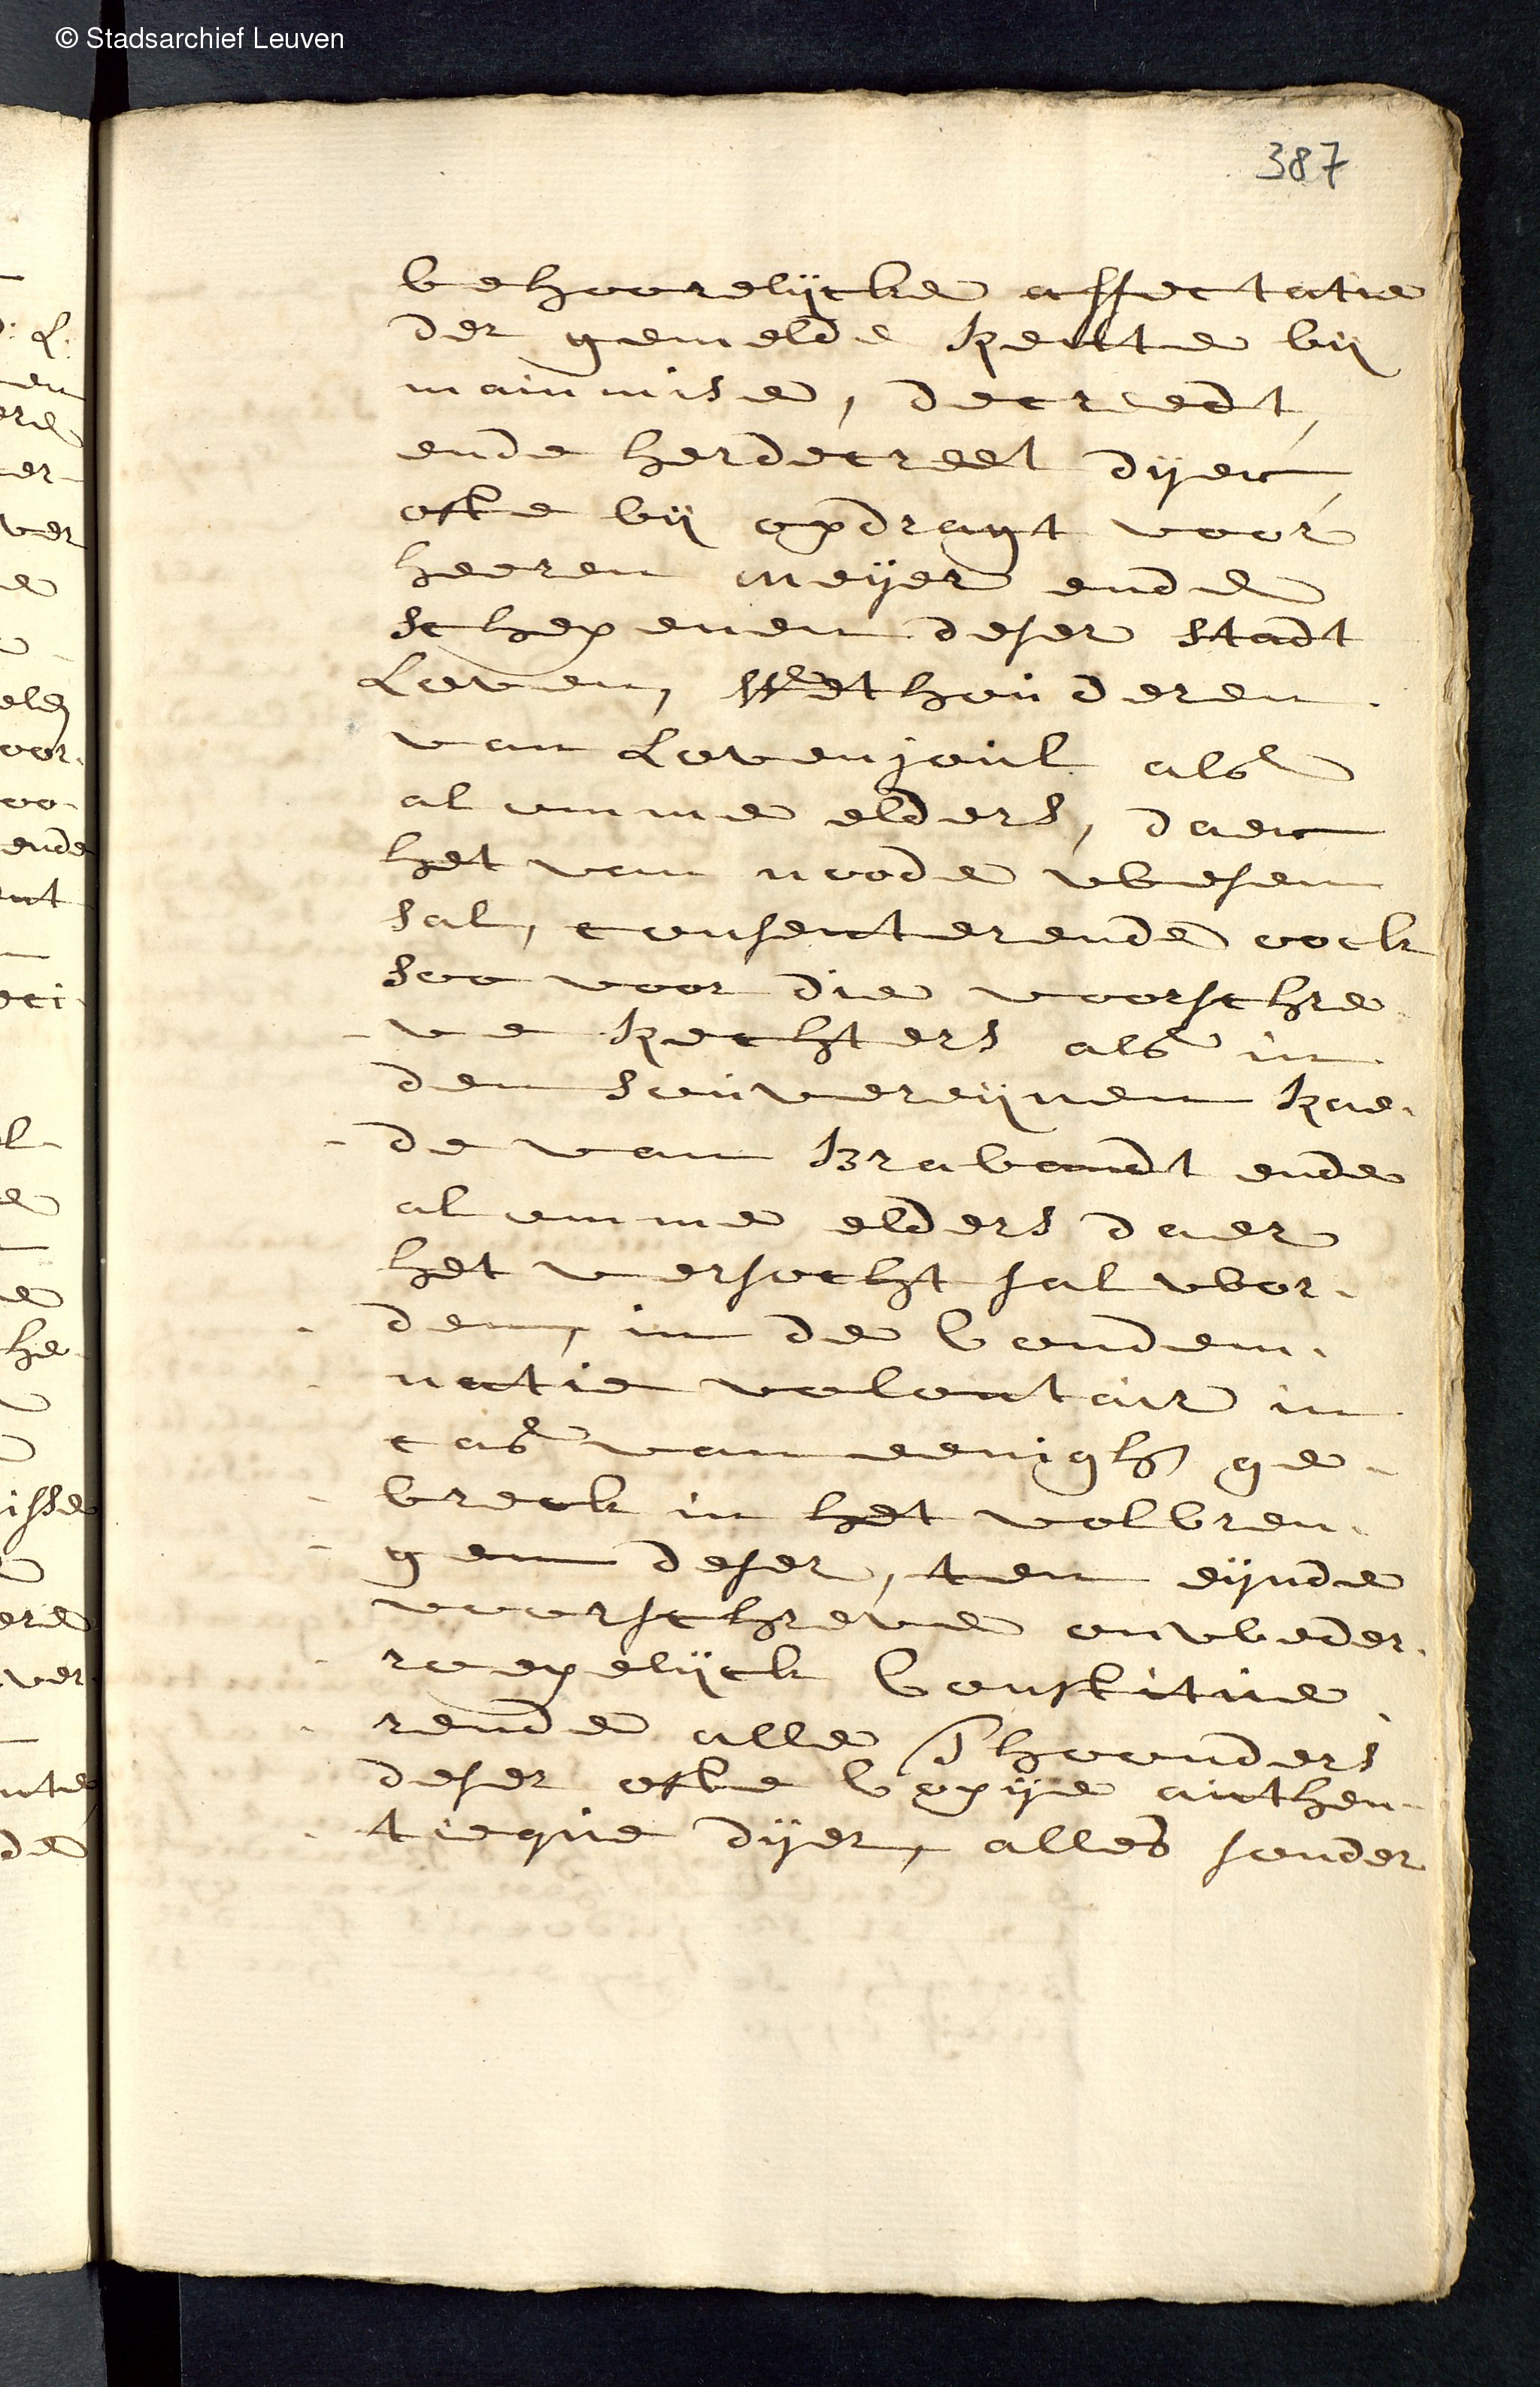 © Stadsarchief Leuven
387
behoorelijcke affectatie
der gemelde Rentte bij
mainmise, decreedt,
ende herdecreet dijer,
ofte bij opdragt voor
heeren Meijer ende
schepenen deser stadt
Loven, Wethouderen
van Lovenjoul als
al omme elders, daer
het van noode wesen
sal, consenterende oock
soo voor die voorschre
-ve Rechters als in
den souvereijnen Rae-
-de van Brabandt ende
al omme elders daer
het versocht sal wor-
-den, in de Condem-
-natie volontair in
cas van eenigh ge-
-breck in het volbren-
-gen deser, ten eijnde
voorschreve onweder-
-roepelijck Constitue
-rende alle Thoonders
deser ofte Copije authen-
-tieque dijer, alles sonder